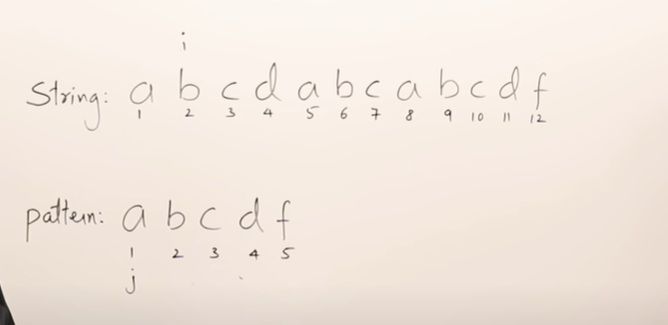 i
String: a b c d a b c a b c d f
1 2 3 4 5 6 7 8 9 10 11 12
pattern: a b c d f
1 2 3 4 5
j